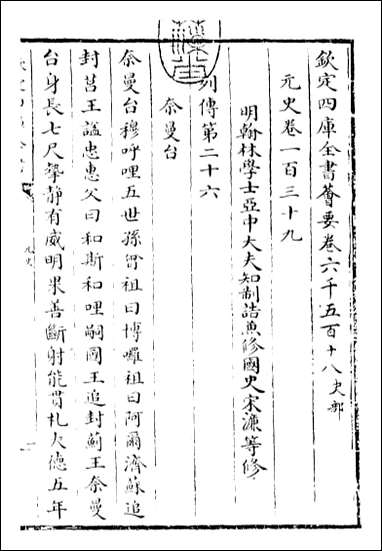 欽定四庫全書薈要卷六千五百十八史部
元史卷一百三十九
明翰林學士亞中大夫知制誥兼修國史宋濂等修
列傳第二十六
奈曼台
奈曼台穆呼哩五世孫曾祖曰博囉祖曰阿爾濟蘇追
封莒王諡忠惠父曰和斯和哩嗣國王追封薊王奈曼
台身長七尺聲靜有威明果善斷射能貫札大德五年
元史
一